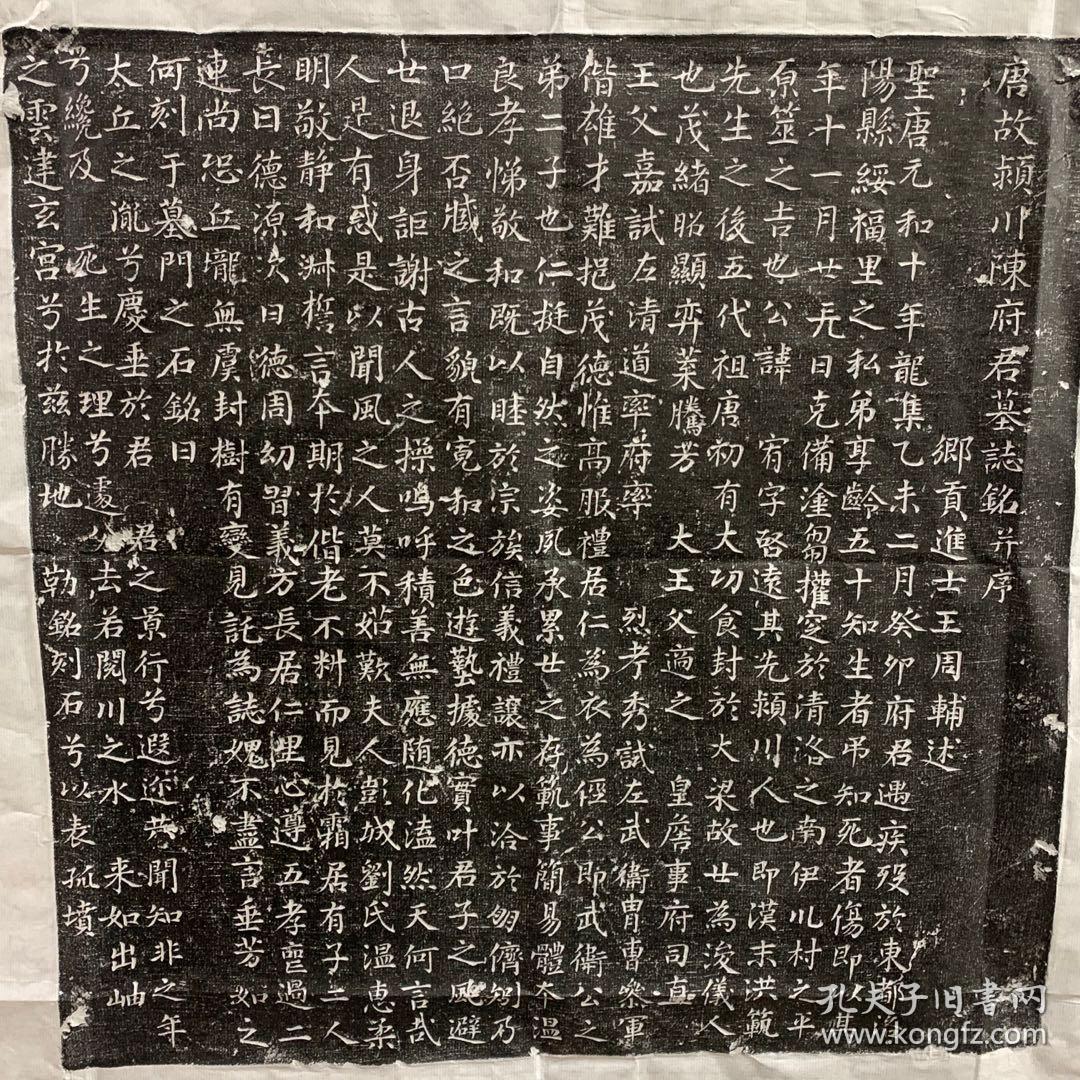 唐故潁川陳府君墓誌銘并序
鄉貢進士王周輔述
聖唐元和十年龍集乙未二月癸卯府君遇疾歿於東都洛
陽縣綏福里之私弟享齡五十知生者弔知死者傷即以其
年十一月廿九日克備塗芻權窆於清洛之南伊川村之平
原筮之吉也公諱 宥字啓遠其先潁川人也即漢末洪範
先生之後五代祖唐初有大功食封於大梁故廿為浚儀人
也茂緒昭顯弈葉騰芳 大王父適之 皇詹事府司直
王父嘉試左清道率府率 烈考秀試左武衛冑曹叅軍
偕雄才難挹茂德惟高服禮居仁為衣為俓公即武衛公之
弟二子也仁挺自然之姿夙承累廿之存範事簡易體本温
良孝悌敬和既以睦於宗族信義禮讓亦以洽於朋儕矧乃
口絕否臧之言貌有寬和之色遊藝據德實叶君子之風避
廿退身詎謝古人之操嗚呼積善無應随化溘然天何言哉
人是有惑是以聞風之人莫不貼歎夫人彭城劉氏温惠柔
明敬静和淋誓言本期於偕老不料而見於霜居有子二人
長曰德源次曰德周幼習義方長居仁里心遵五孝亹過二
連尚恐丘壠無虞封樹有變見託為誌媿不盡言垂芳如之
何刻于墓門之石銘曰
太丘之胤兮慶垂於君 君之景行兮遐迩共聞知非之年
兮纔及 死生之理兮處分去若閱川之水 来如出岫
之雲建玄宮兮於兹勝地 勒銘刻石兮以表孤墳
孔夫子旧书网
www.kongfz.com